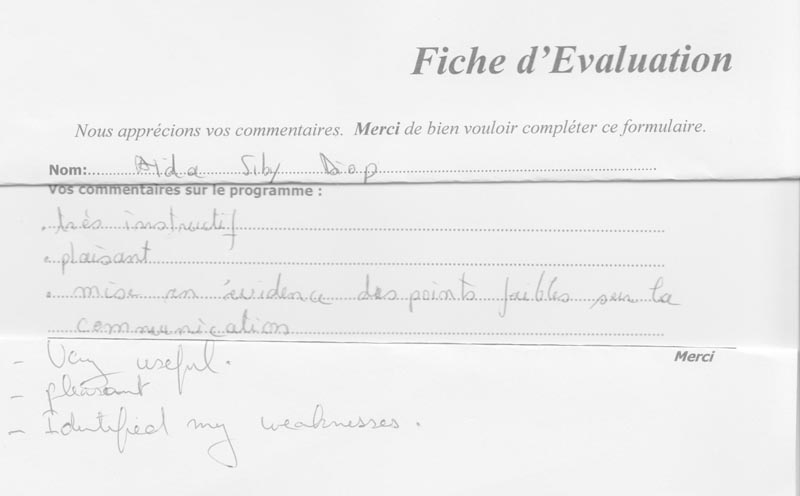 Fiche d'Evaluation
Nous apprécions vos commentaires. Merci de bien vouloir compléter ce formulaire.
Nom: Aida Siby Diop
Vos commentaires sur le programme :
. très instructif
. plaisant
. mise en évidence des points faibles sur la
communication
Merci
- Very useful.
- pleasant
- Identified my weaknesses.